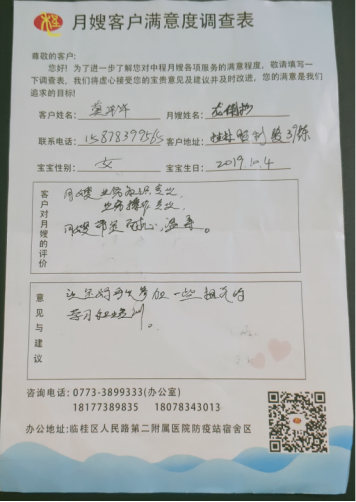 月嫂客户满意度调查表
尊敬的客户:
您好! 为了进一步了解您对中程月嫂各项服务的满意程度, 敬请填写一
下调查表, 我们将虚心接受您的宝贵意见及建议并及时改进, 您的满意是我们
追求的目标!
客户姓名: 月嫂姓名:
联系电话: 客户地址: 桂林
宝宝性别: 女 宝宝生日: 2019.10.4
客户对月嫂的评价
月嫂业务知识专业
业务操作专业
月嫂带完耐心,温柔。
意见与建议
参加一些相关的
学习和培训。
咨询电话: 0773-3899333(办公室)
18177389835 18078343013
办公地址: 临桂区人民路第二附属医院防疫站宿舍区